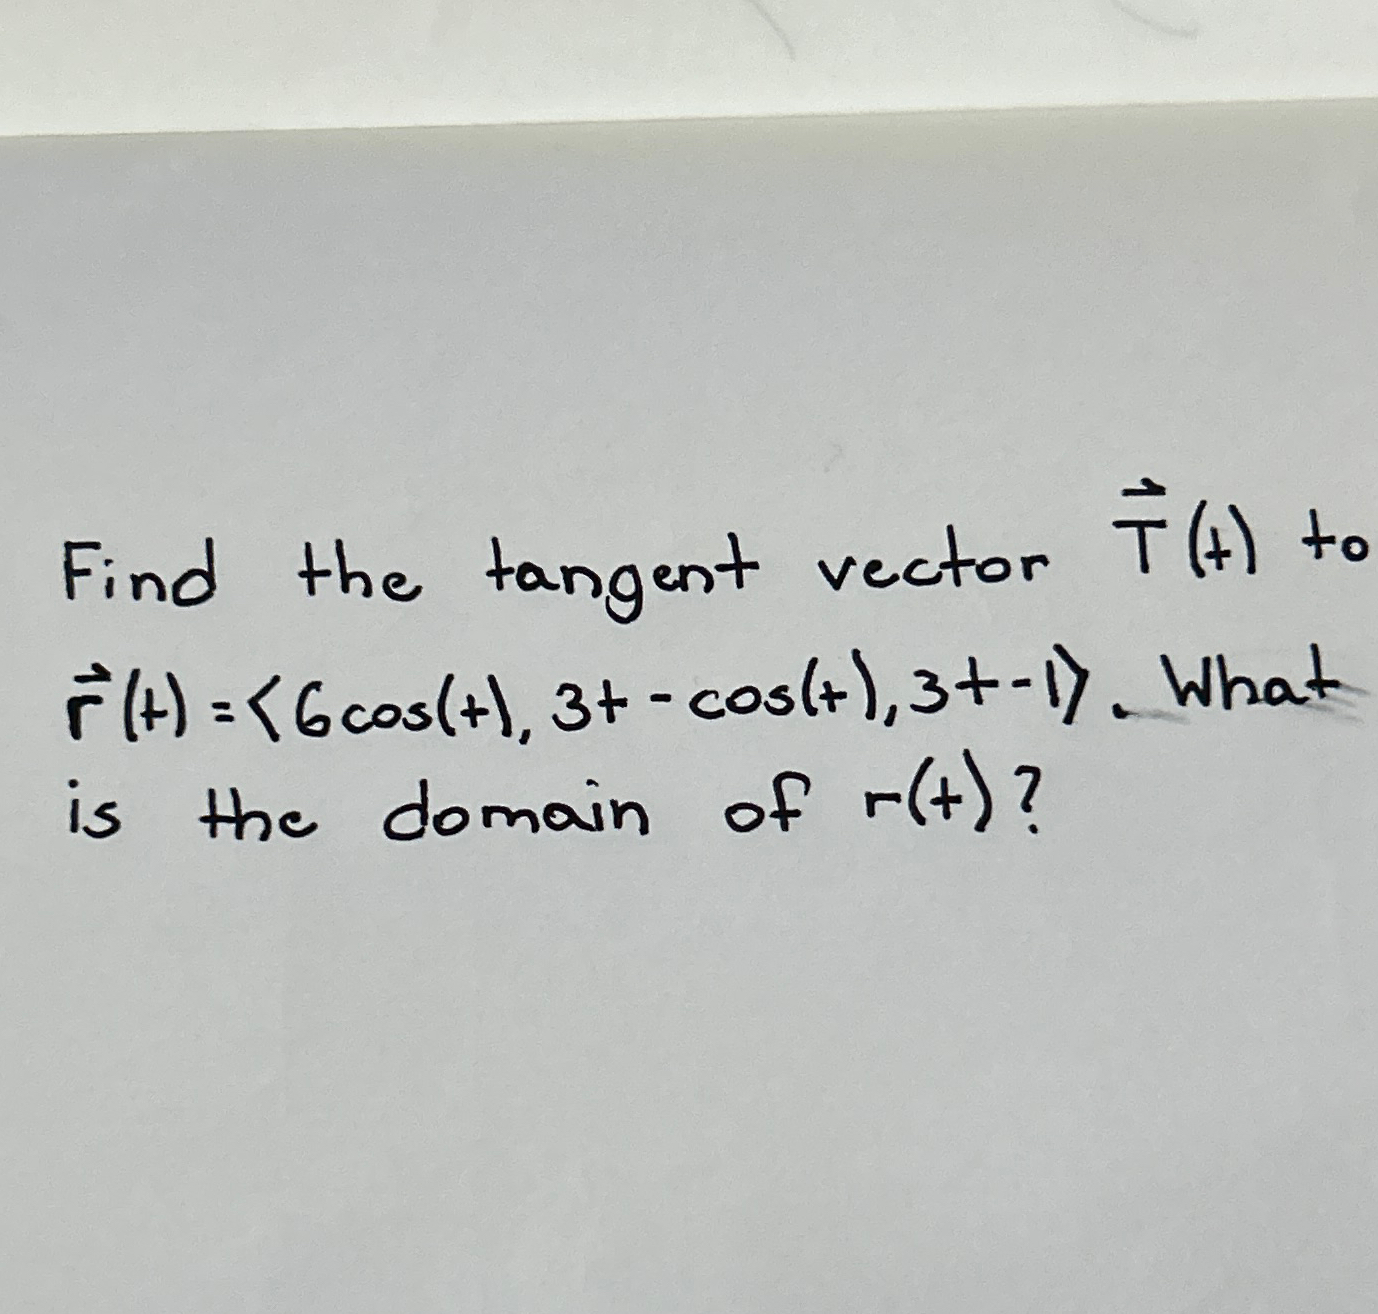 Find the tangent vector T⃗(t) to
r⃗(t) = ⟨6cos(t), 3t - cos(t), 3t - 1⟩. What
is the domain of r(t)?